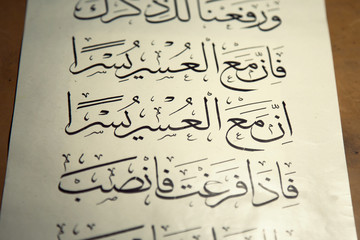 ورفعنا لك ذكرك
فان مع العسر يسرا
ان مع العسر يسرا
فاذا فرغت فانصب